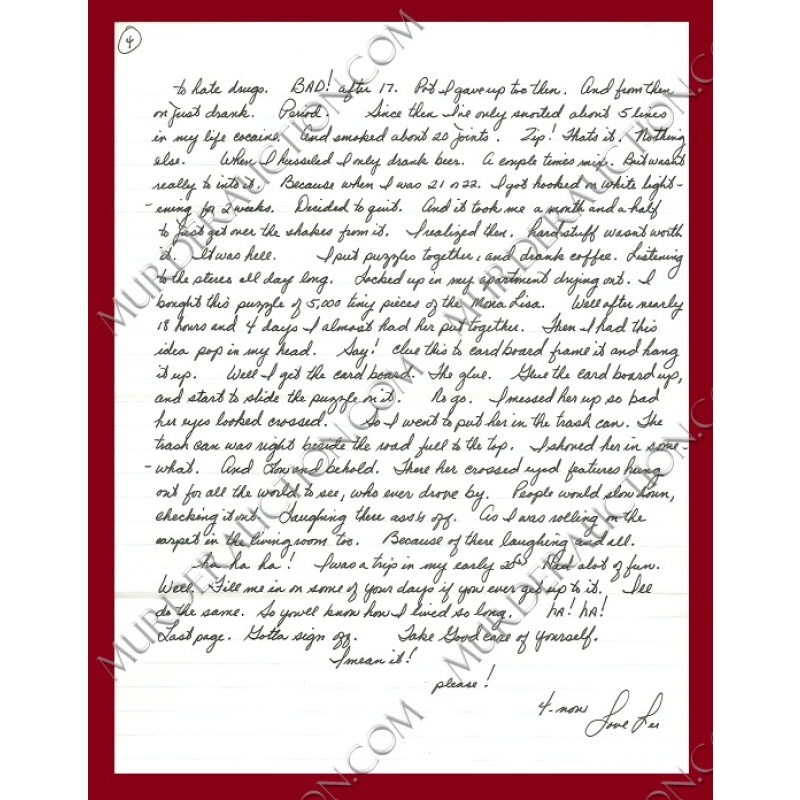 4
to hate drugs. BAD! after 17. Pot I gave up too then. And from then
on just drank. Period. Since then I've only snorted about 5 lines
in my life cocaine. And smoked about 20 joints. Zip! Thats it. Nothing
else. When I husseled I only drank beer. A couple times mix. But wasn't
really to into it. Because when I was 21 or 22. I got hooked on white light-
-ening for 2 weeks. Decided to quit. And it took me a month and a half
to just get over the shakes from it. I realized then. hard stuff wasn't worth
it. It was hell. I put puzzles together, and drank coffee. Listening
to the stereo all day long. Locked up in my apartment drying out. I
bought this puzzle of 5,000 tiny pieces of the Mona Lisa. Well after nearly
18 hours and 4 days I almost had her put together. Then I had this
idea pop in my head. Say! glue this to card board frame it and hang
it up. Well I get the card board. The glue. Glue the card board up,
and start to slide the puzzle on it. No go. I messed her up so bad
her eyes looked crossed. So I went to put her in the trash can. The
trash can was right beside the road full to the top. I shoned her in some-
-what. And Low and behold. There her crossed eyed features hung
out for all the world to see, who ever drove by. People would slow down,
checking it out. Laughing there ass's off. As I was rolling on the
carpet in the living room too. Because of there laughing and all.
ha ha ha! I was a trip in my early 20s Had alot of fun.
Well. Fill me in on some of your days if you ever get up to it. I'll
do the same. So you'll know how I lived so long. HA! HA!
Last page. Gotta sign off. Take Good care of yourself.
I mean it!
please!
4-now Love Lee
MURDERAUCTION.COM
MURDERAUCTION.COM
MURDERAUCTION.COM
MURDERAUCTION.COM